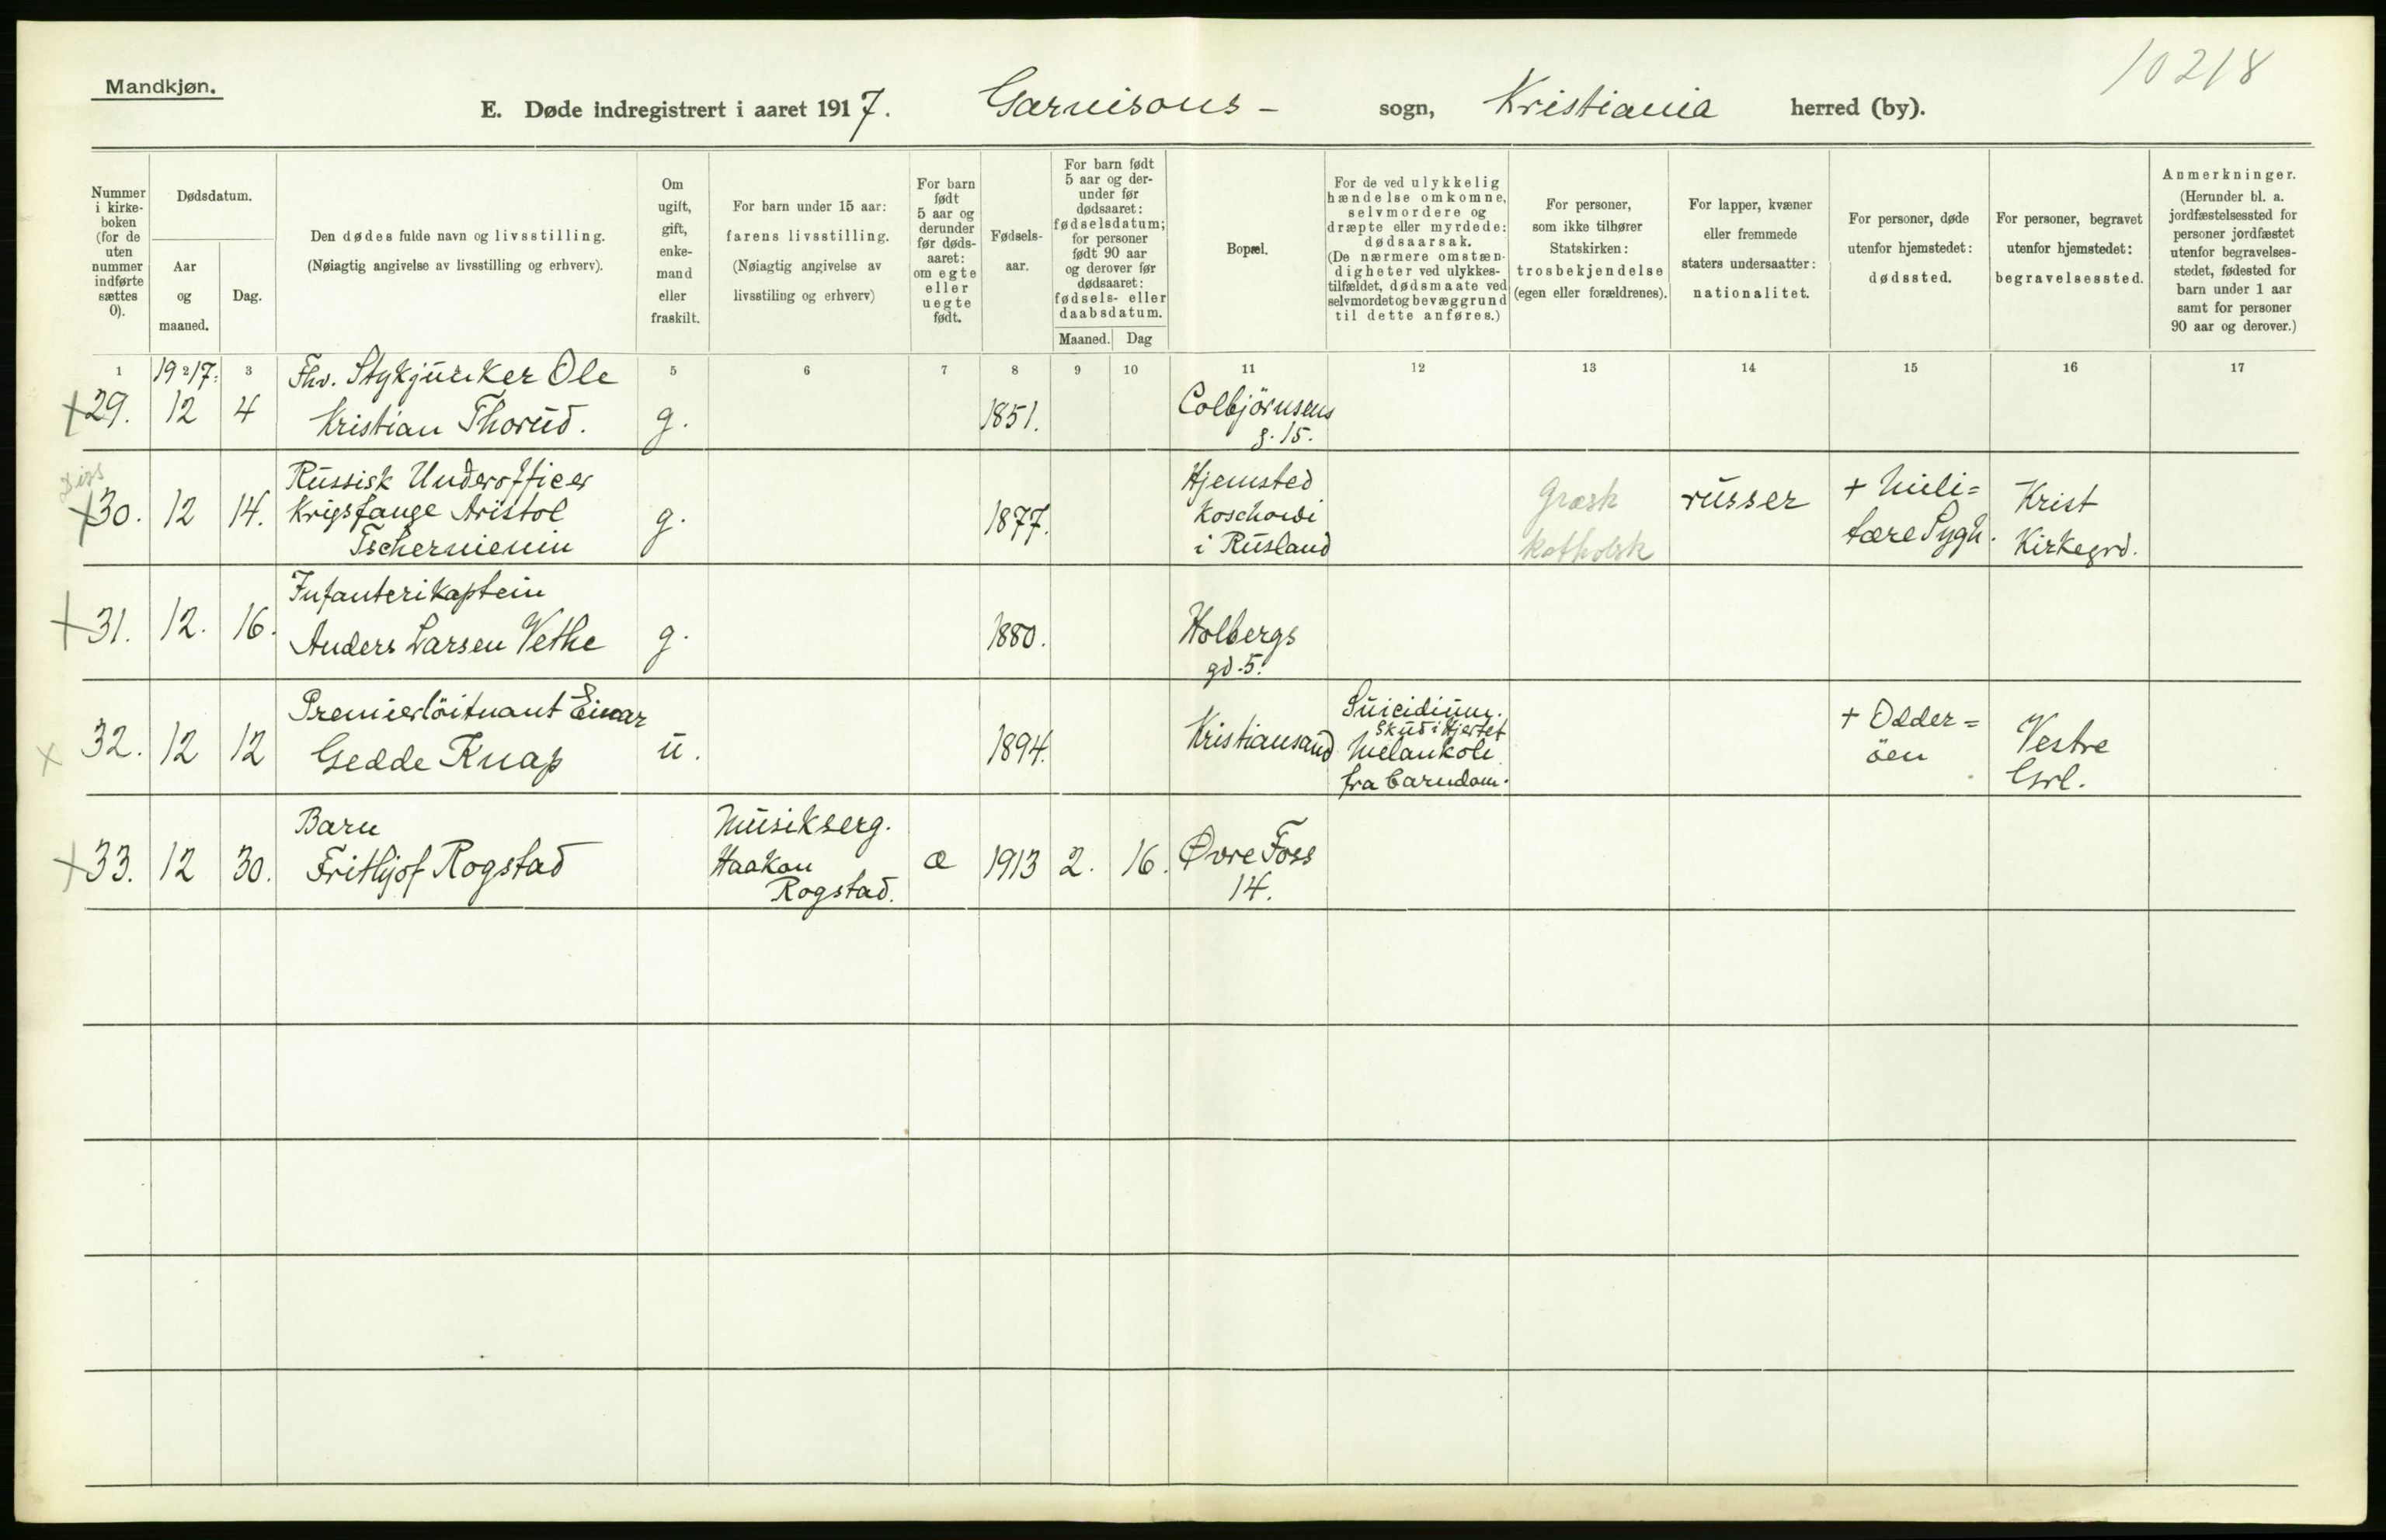 10218
Mandkjøn.
E. Døde indregistrert i aaret 1917. Garnisons- sogn, Kristiania herred (by).
Nummer i kirke-boken (for de uten nummer indførte sættes 0).
Dødsdatum.
Aar og maaned.
Dag.
Den dødes fulde navn og livsstilling.
(Nøiagtig angivelse av livsstilling og erhverv).
Om ugift, gift, enke-mand eller fraskilt.
For barn under 15 aar:
farens livsstilling.
(Nøiagtig angivelse av
livsstiling og erhverv)
For barn født 5 aar og derunder før døds-aaret: om egte eller uegte født.
Fødsels-aar.
For barn født
5 aar og der-
under før
dødsaaret:
fødselsdatum;
for personer
født 90 aar
og derover før
dødsaaret:
fødsels- eller
daabsdatum.
Maaned. Dag
Bopæl.
For de ved ulykkelig
hændelse omkomne,
selvmordere og
dræpte eller myrdede:
dødsaarsak.
(De nærmere omstæn-
digheter ved ulykkes-
tilfældet, dødsmaate ved
selvmordet og bevæggrund
til dette anføres.)
For personer,
som ikke tilhører
Statskirken:
trosbekjendelse
(egen eller forældrenes).
For lapper, kvæner
eller fremmede
staters undersaatter:
nationalitet.
For personer, døde
utenfor hjemstedet:
dødssted.
For personer, begravet
utenfor hjemstedet:
begravelsessted.
Anmerkninger.
(Herunder bl. a.
jordfæstelsessted for
personer jordfæstet
utenfor begravelses-
stedet, fødested for
barn under 1 aar
samt for personer
90 aar og derover.)
1 2 3 5 6 7 8 9 10 11 12 13 14 15 16 17
1917:
+ 29. 12 4 Fhv. Stykjunker Ole
Kristian Thorud. g. 1851. Colbjörnsens
g. 15.
Diss
+ 30. 12 14. Russisk Underofficer
Krigsfange Aristol
Tschernienin g. 1877. Hjemsted
Koschowi
i Rusland Græsk
katholsk russer + Mili=
tære Sygh. Krist
Kirkegrd.
+ 31. 12. 16. Infanterikaptein
Anders Larsen Vethe g. 1880. Holbergs
gd. 5.
x 32. 12 12 Premierlöitnant Einar
Gedde Knap u. 1894. Kristiansand Suicidium.
Skud i Hjertet
Melankoli
fra barndom. + Odder=
öen Vestre
Grl.
+ 33. 12 30. Barn
Frithjof Rogstad Musikserg.
Haakon
Rogstad. æ 1913 2. 16. Øvre Foss
14.